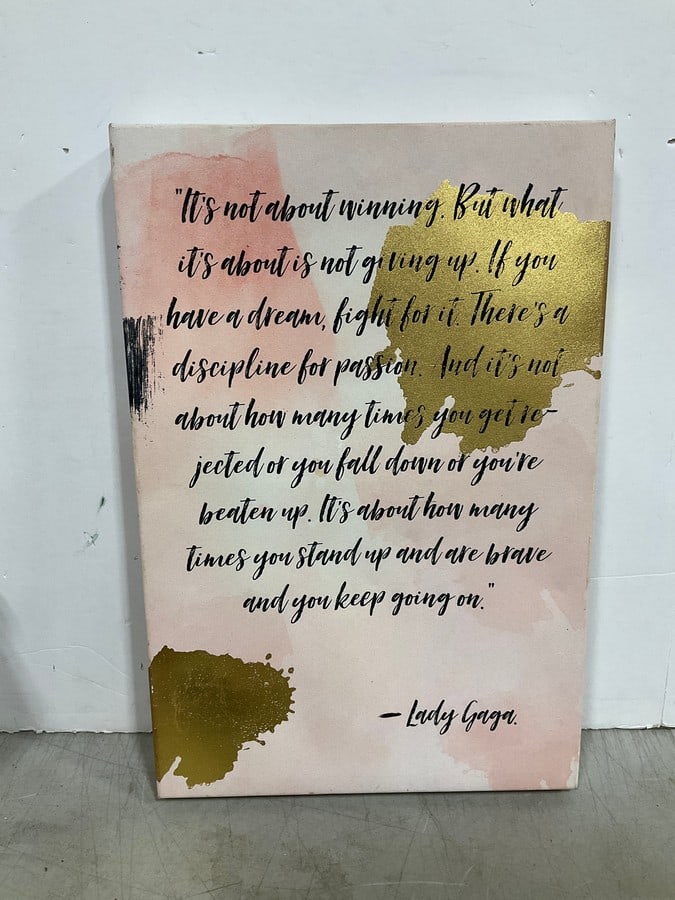 "It's not about winning. But what
it's about is not giving up. If you
have a dream, fight for it. There's a
discipline for passion. And it's not
about how many times you get re-
jected or you fall down or you're
beaten up. It's about how many
times you stand up and are brave
and you keep going on."
— Lady Gaga.